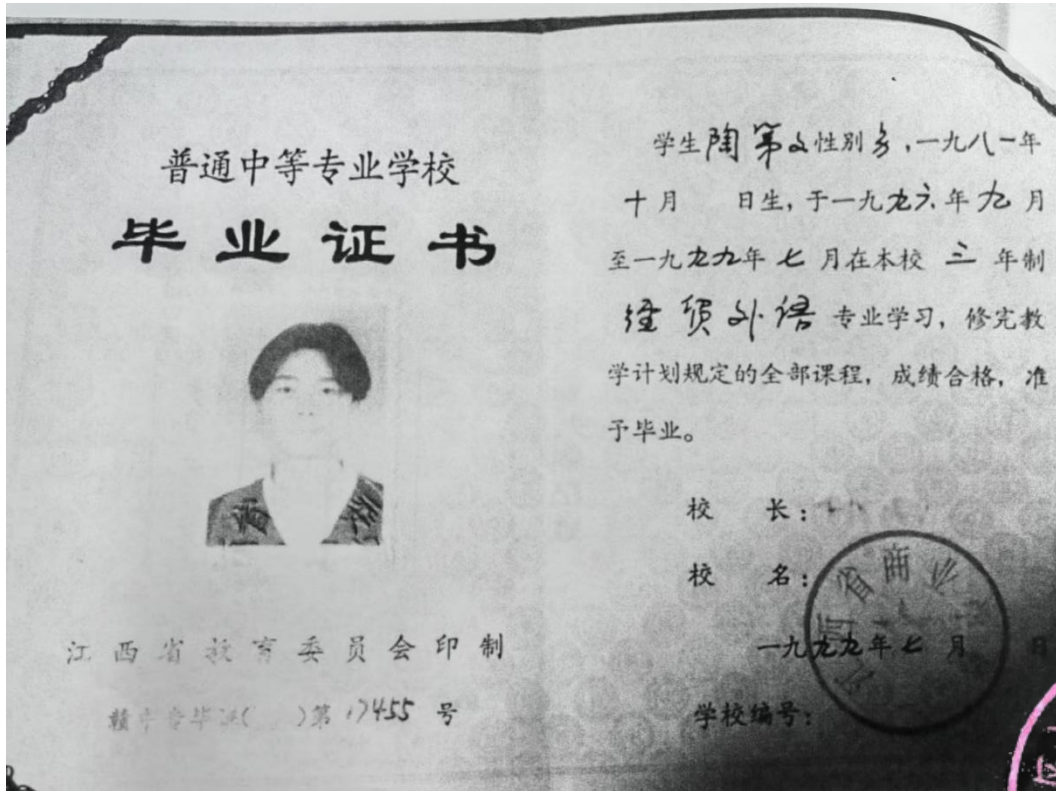 普通中等专业学校
毕业证书
江西省教育委员会印制
赣中专毕证( )第17455号
学生陶第文性别男,一九八一年
十月 日生,于一九九六年九月
至一九九九年七月在本校三年制
经贸外语专业学习,修完教
学计划规定的全部课程,成绩合格,准
予毕业。
校 长:
校 名:
西省商业
一九九九年七月 日
学校编号: